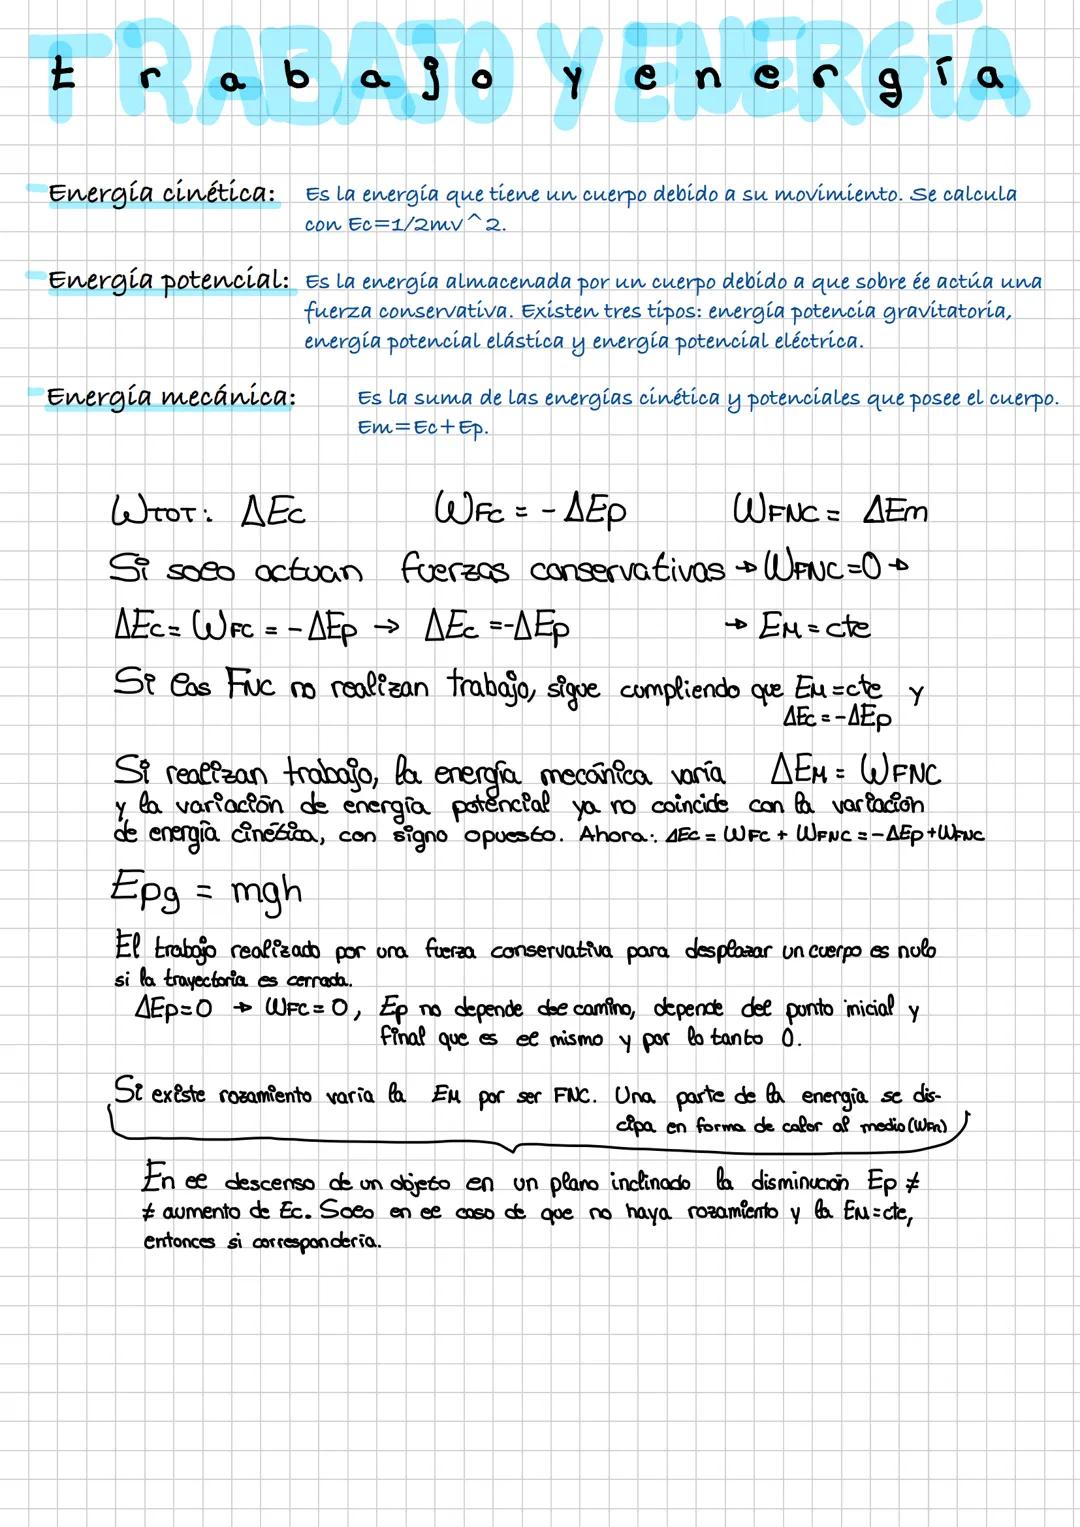 TRABAJO Y ENERGÍA
trabajo y energía
Energía cinética: Es la energía que tiene un cuerpo debido a su movimiento. Se calcula
con Ec=1/2mv^2.
Energía potencial: Es la energía almacenada por un cuerpo debido a que sobre ée actúa una
fuerza conservativa. Existen tres tipos: energía potencia gravitatoria,
energía potencial elástica y energía potencial eléctrica.
Energía mecánica: Es la suma de las energías cinética y potenciales que posee el cuerpo.
Em=Ec+Ep.
WTOT: ΔEc WFc = -ΔEp WFNC = ΔEm
Si solo actuan fuerzas conservativas → WFNC=0 →
ΔEc = WFC = -ΔEp → ΔEc =-ΔEp → EM = cte
Si las FNC no realizan trabajo, sigue cumpliendo que EM =cte y
ΔEc =-ΔEp
Si realizan trabajo, la energía mecánica varía ΔEM = WFNC
y la variación de energía potencial ya no coincide con la variación
de energía cinética, con signo opuesto. Ahora: ΔEc = WFC + WFNC =-ΔEp+WFNC
Epg = mgh
El trabajo realizado por una fuerza conservativa para desplazar un cuerpo es nulo
si la trayectoria es cerrada.
ΔEp=0 → WFC=0, Ep no depende del camino, depende del punto inicial y
final que es el mismo y por lo tanto 0.
Si existe rozamiento varia la EM por ser FNC. Una parte de la energía se dis-
cipa en forma de calor al medio (WFR)
En el descenso de un objeto en un plano inclinado la disminución Ep ≠
≠ aumento de Ec. Solo en el caso de que no haya rozamiento y la EM=cte,
entonces si correspondería.